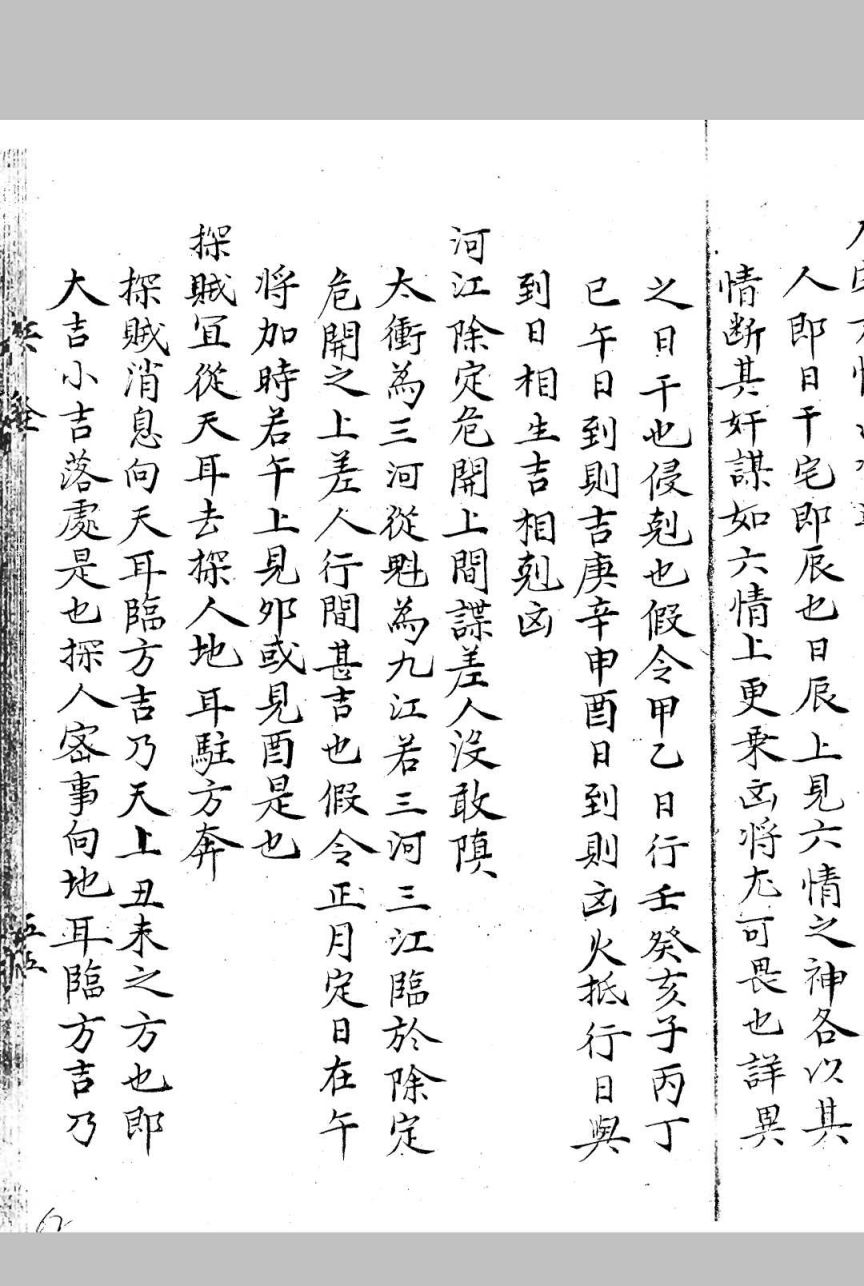 人即日干宅即辰也日辰上見六情之神各以其
情断其奸謀如六情上更乗凶将尤可畏也詳異
之日干也侵剋也假令甲乙日行壬癸亥子丙丁
巳午日到則吉庚辛申酉日到則凶大抵行日與
到日相生吉相剋凶
河江除定危開上間諜差人没敢隕
太衝為三河從魁為九江若三河三江臨於除定
危開之上差人行間甚吉也假令正月定日在午
将加時若午上見夘或見酉是也
探賊宜從天耳去探人地耳駐方奔
探賊消息向天耳臨方吉乃天上丑未之方也即
大吉小吉落處是也探人密事向地耳臨方吉乃
五